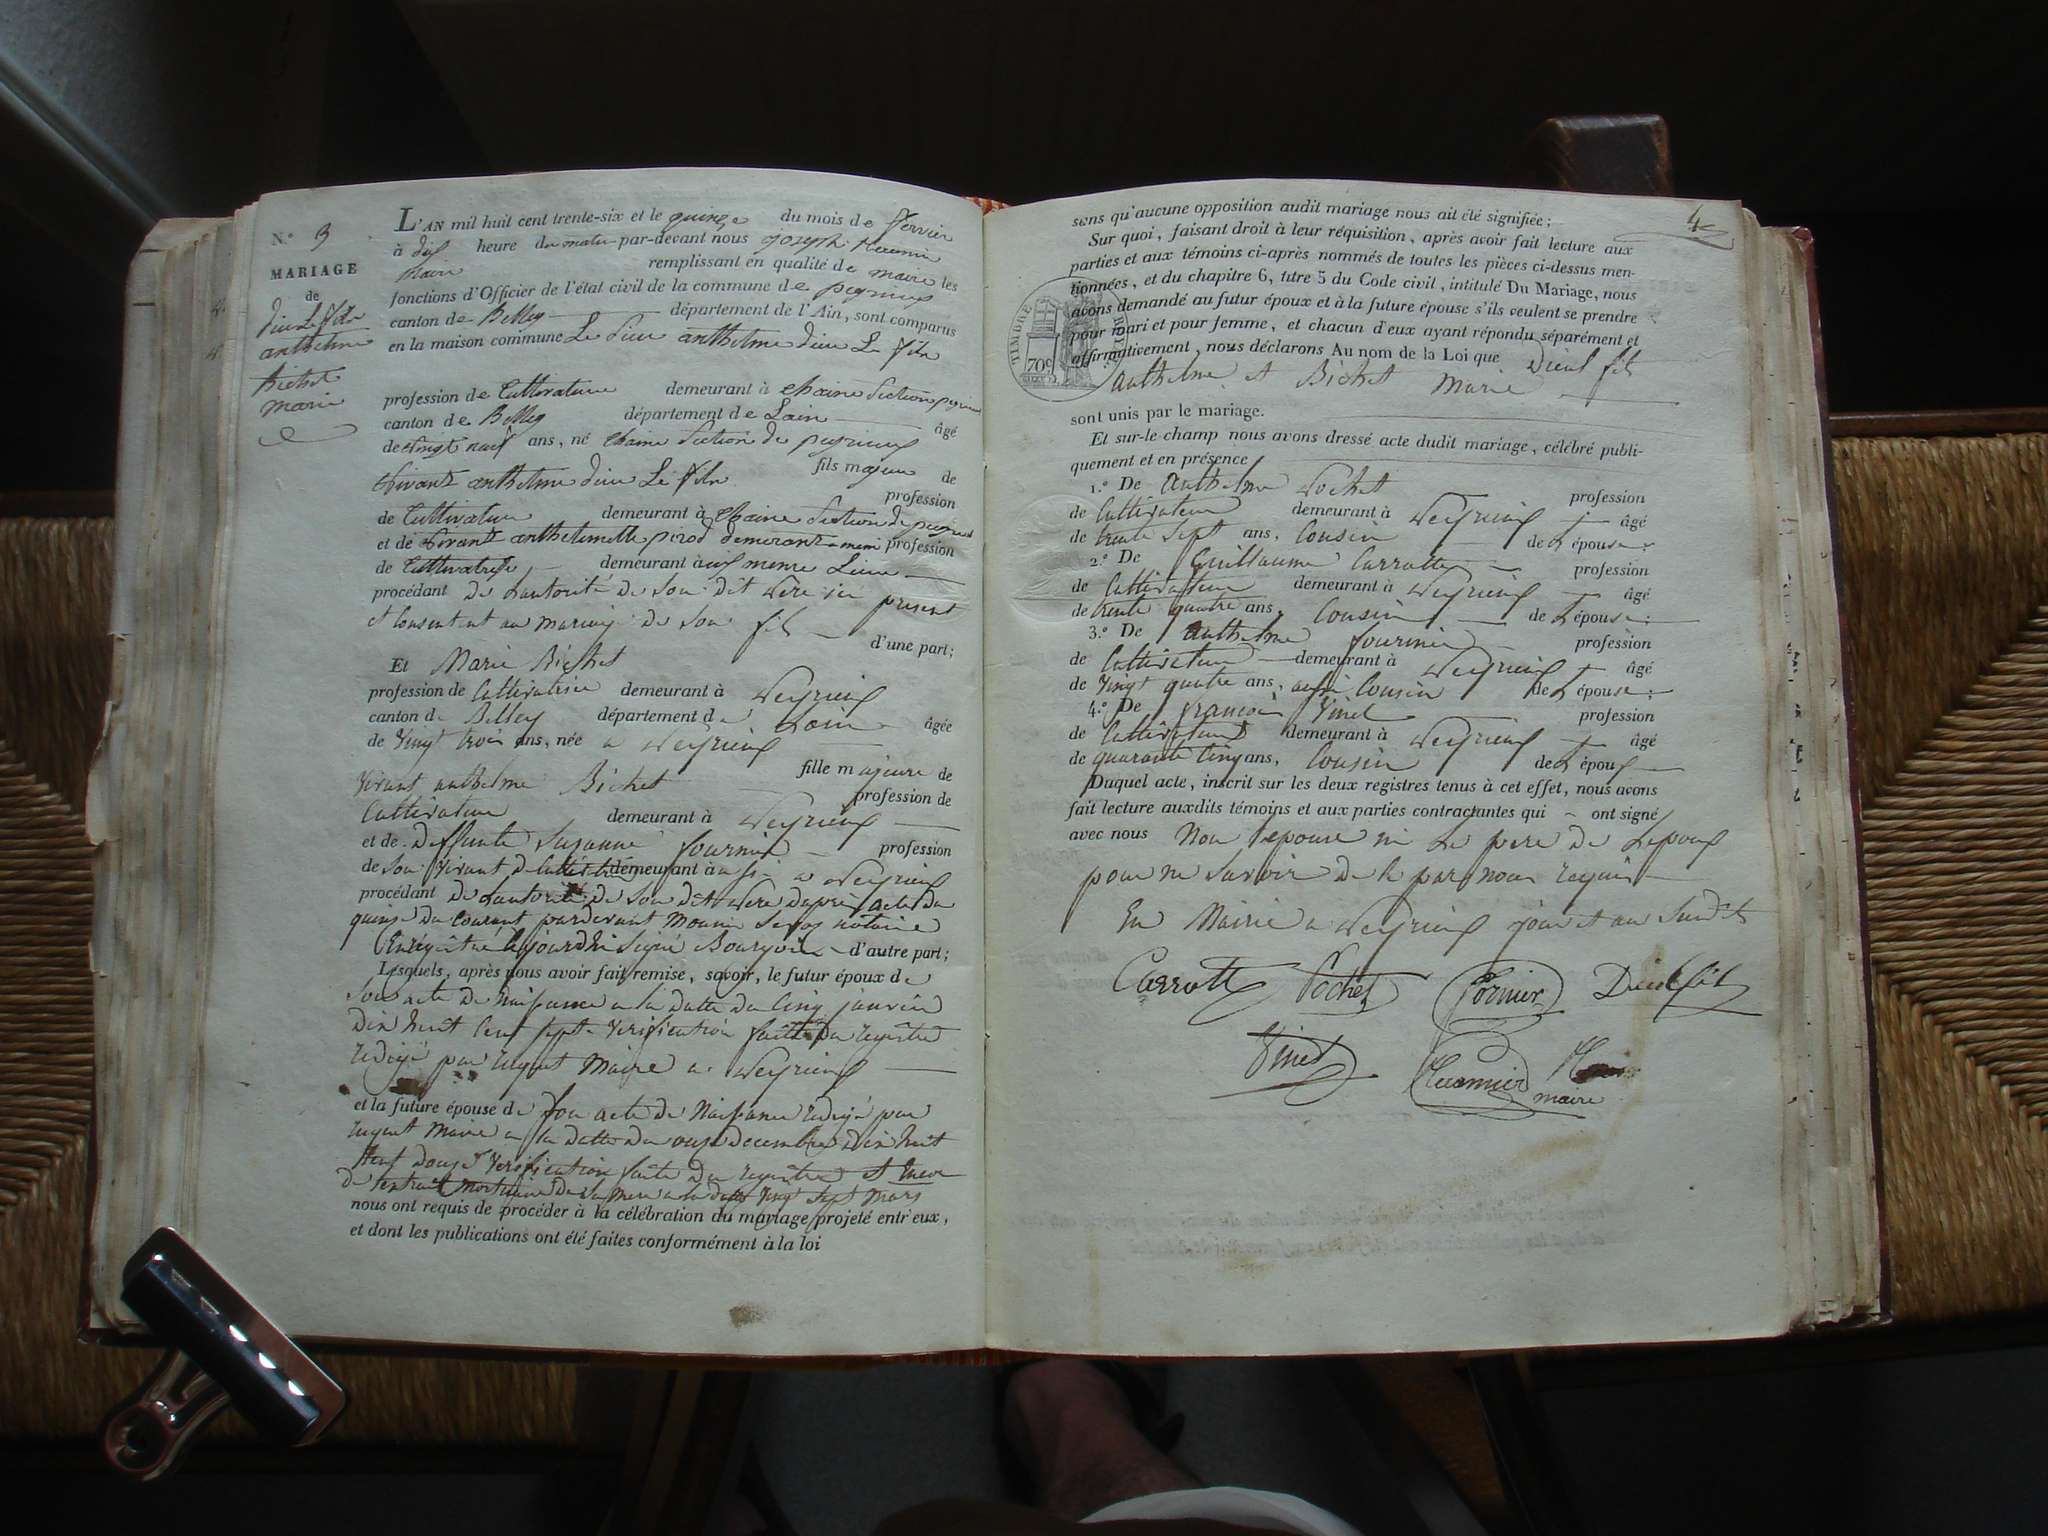 N.º 3
MARIAGE
de
dieu Le fils
anthelme
bichet
marie
L'AN mil huit cent trente-six et le quinze du mois de fevrier
à dix heure du matin par-devant nous joseph
maire remplissant en qualité de maire les
fonctions d'Officier de l'état civil de la commune de peyrieux
canton de Belley département de l'Ain, sont comparus
en la maison commune Le Sieur anthelme dieu Le fils
profession de Cultivateur demeurant à Chaine Section peyrieux
canton de Belley département de Lain âgé
de vingt neuf ans, né Chaine Section de peyrieux
fils majeur de
vivant anthelme dieu Le fils profession
de Cultivateur demeurant à Chaine Section de peyrieux
et de vivante anthelmette pirod demeurant profession
de Cultivatrice demeurant à meme Lieu
procédant de Lautorité de Son dit Pere ici present
et Consentent au mariage de Son fils
d'une part;
Et Marie Bichet
profession de Cultivatrice demeurant à Peyrieux
canton de Belley département de Lain âgée
de vingt trois ans, née a Peyrieux
fille majeure de
vivant anthelme Bichet profession de
Cultivateur demeurant à Peyrieux
et de Deffunte Susanne fournier profession
de Son vivant demeurant à a Peyrieux
procédant de Lautorité de Son dit Pere dapres acte du
quinze du Courant pardevant notaire
d'autre part;
Lesquels, après nous avoir fait remise, savoir, le futur époux de
Son acte de naissance a la datte du Cinq janvier
Dix huit Cent Sept verification faite du registre
redigé par maire a Peyrieux
et la future épouse de Son acte de Naissance redigé par
Maire a la datte du onze decembre Dix huit
Cent douze verification faite du registre et
de lextrait mortuaire de Sa Mere a la datte vingt Sept Mars
nous ont requis de procéder à la célébration du mariage projeté entr'eux,
et dont les publications ont été faites conformément à la loi
4
sans qu'aucune opposition audit mariage nous ait été signifiée;
Sur quoi, faisant droit à leur réquisition, après avoir fait lecture aux
parties et aux témoins ci-après nommés de toutes les pièces ci-dessus men-
tionnées, et du chapitre 6, titre 5 du Code civil, intitulé Du Mariage, nous
avons demandé au futur époux et à la future épouse s'ils veulent se prendre
pour mari et pour femme, et chacun d'eux ayant répondu séparément et
affirmativement, nous déclarons Au nom de la Loi que Dieul fils
anthelme et Bichet Marie
TIMBRE ROYAL
70c
sont unis par le mariage.
Et sur-le-champ nous avons dressé acte dudit mariage, célébré publi-
quement et en présence
1.º De anthelme Pochet profession
de Cultivateur demeurant à Peyrieux âgé
de trente Sept ans, Cousin de Lépouse;
2.º De Guillaume Carrotte profession
de Cultivateur demeurant à Peyrieux âgé
de trente quatre ans, Cousin de Lépouse;
3.º De anthelme fournier profession
de Cultivateur demeurant à Peyrieux âgé
de vingt quatre ans, aussi Cousin de Lépouse;
4.º De francois Vinet profession
de Cultivateur demeurant à Peyrieux âgé
de quarante Cinq ans, Cousin de Lépoux
Duquel acte, inscrit sur les deux registres tenus à cet effet, nous avons
fait lecture auxdits témoins et aux parties contractantes qui ont signé
avec nous Non lepouse ni Le pere de Lepoux
pour ne Savoir de le par nous requis
En Mairie a Peyrieux jour et an Susdit
Carrott Pochet fornier Dieulefit
Vinet
maire